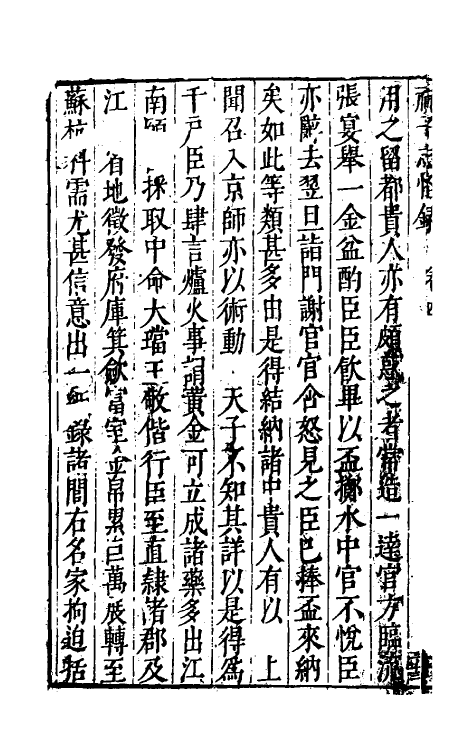 祝子志怪錄 卷四
用之留都貴人亦有頗惑之者嘗造一達官方臨流
張宴舉一金盆酌臣臣飲畢以盃擲水中官不悅臣
亦辭去翌旦詣門謝官官含怒見之臣已捧盃來納
矣如此等類甚多由是得結納諸中貴人有以 上
聞召入京師亦以術動 天子不知其詳以是得爲
千戶臣乃肆言爐火事謂黃金可立成諸藥多出江
南願 採取中命大璫王敬偕行臣至直隸諸郡及
江 省地徵發府庫箕斂富室金帛累巨萬展轉至
蘇杭 科需尤甚信意出一 錄諸閭右名家拘迫括